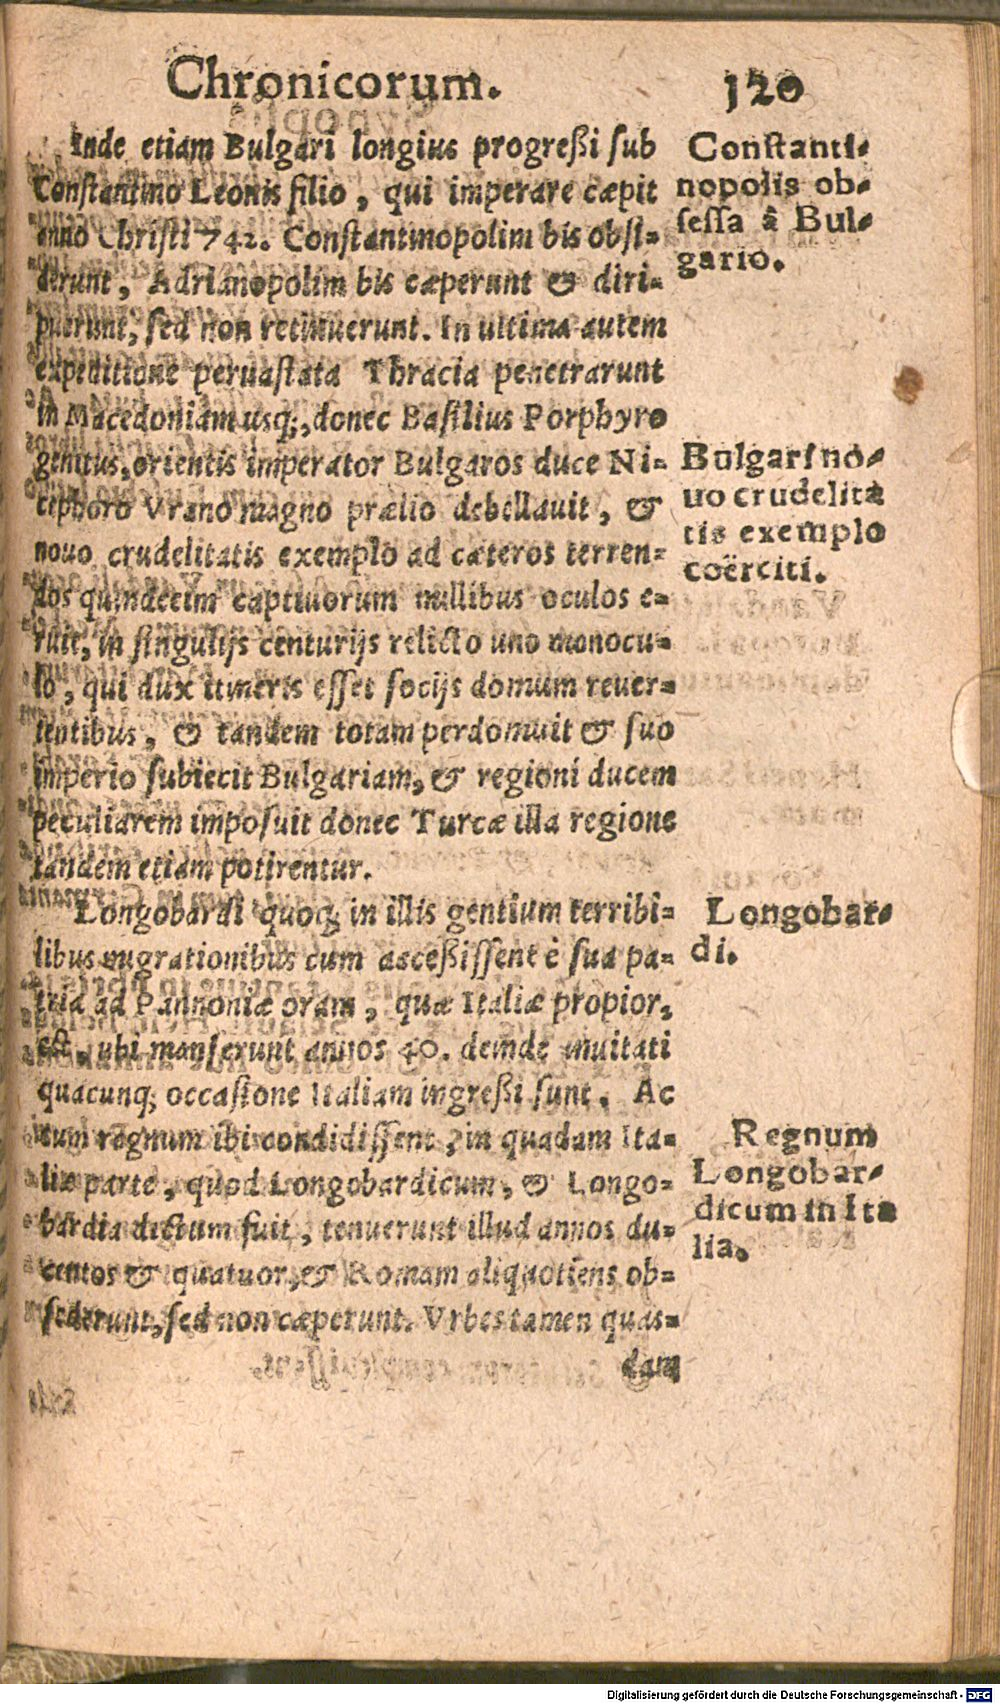 Chronicorum. 120
Inde etiam Bulgari longius progreßi ſub
Conſtantino Leonis filio, qui imperare cæpit
anno Chriſti 742. Conſtantinopolim bis obſi-
derunt, Adrianopolim bis cæperunt & diri-
puerunt, ſed non retinuerunt. In ultima autem
expeditione peruaſtata Thracia penetrarunt
in Macedoniam usq;, donec Baſilius Porphyro
genitus, orientis imperator Bulgaros duce Ni-
cephoro Vrano magno prælio debellauit, &
nouo crudelitatis exemplo ad cæteros terren-
dos quindecim captiuorum millibus oculos e-
ruit, in ſingulijs centurijs relicto uno monocu-
lo, qui dux itineris eſſet ſocijs domum reuer-
tentibus, & tandem totam perdomuit & ſuo
imperio ſubiecit Bulgariam, & regioni ducem
peculiarem impoſuit donec Turcæ illa regione
tandem etiam potirentur.
Longobardi quoq; in illis gentium terribi-
libus migrationibus cum acceßiſſent è ſua pa-
tria ad Pannoniæ oram, quæ Italiæ propior,
eſt, ubi manſerunt annos 40. deinde inuitati
quacunq; occaſione Italiam ingreßi ſunt. Ac
cum regnum ibi condidiſſent, in quadam Ita-
liæ parte, quod Longobardicum, & Longo-
bardia dictum fuit, tenuerunt illud annos du-
centos & quatuor, & Romam aliquotiens ob-
ſederunt, ſed non cæperunt. Vrbes tamen quas-
dam
Conſtanti-
nopolis ob-
ſeſſa â Bul-
gario.
Bulgari no-
uo crudelita
tis exemplo
coërciti.
Longobar-
di.
Regnum
Longobar-
dicum in Ita
lia.
Digitalisierung gefördert durch die Deutsche Forschungsgemeinschaft - DFG